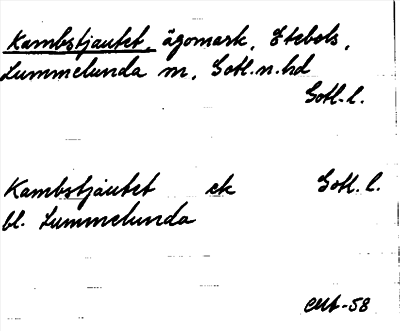 Kambstjautet, ägomark, Etebols,
Lummelunda m, Gotl. n. hd
Gotl. l.
Kambstjautet ek Gotl. l.
bl. Lummelunda
-58